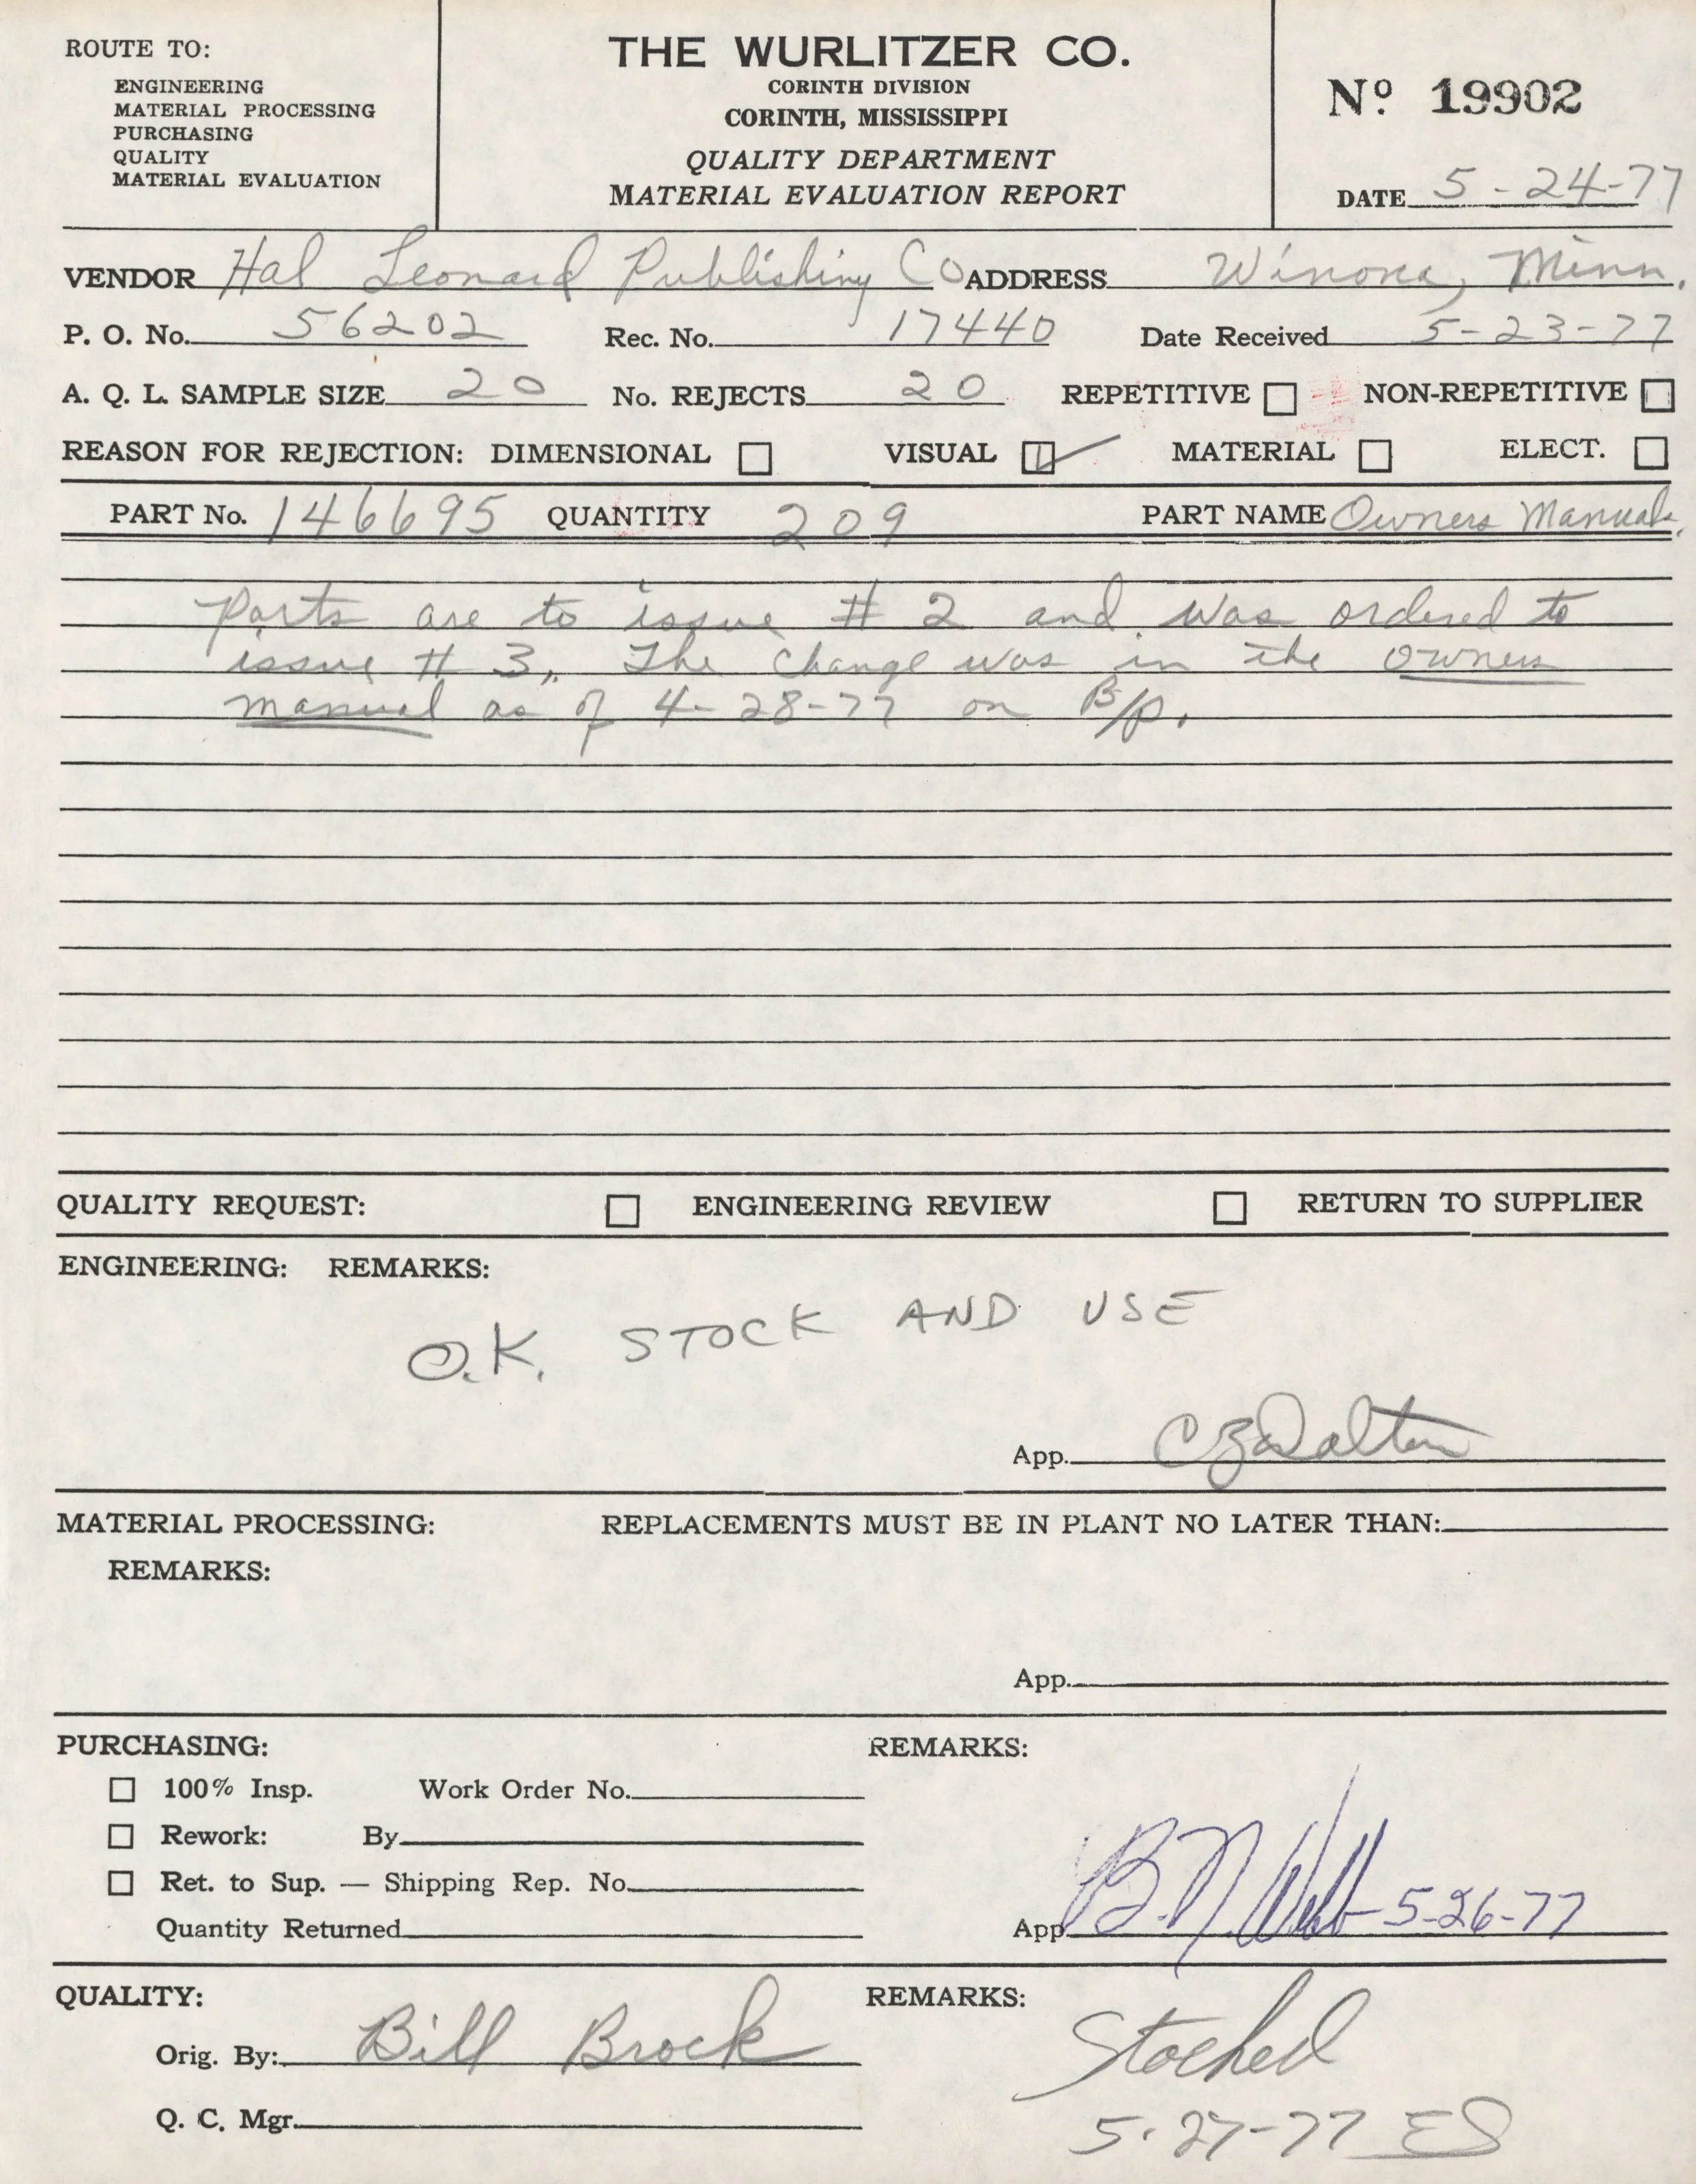 ROUTE TO:
ENGINEERING
MATERIAL PROCESSING
PURCHASING
QUALITY
MATERIAL EVALUATION
THE WURLITZER CO.
CORINTH DIVISION
CORINTH, MISSISSIPPI
QUALITY DEPARTMENT
MATERIAL EVALUATION REPORT
Nº 19902
DATE 5-24-77
VENDOR Hal Leonard Publishing Co ADDRESS Winona, Minn.
P. O. No. 56202 Rec. No. 17440 Date Received 5-23-77
A. Q. L. SAMPLE SIZE 20 No. REJECTS 20 REPETITIVE NON-REPETITIVE
REASON FOR REJECTION: DIMENSIONAL VISUAL MATERIAL ELECT.
PART No. 146695 QUANTITY 209 PART NAME Owners Manual
Parts are to issue # 2 and was ordered to
issue # 3, The change was in the owners
manual as of 4-28-77 on B/P.
QUALITY REQUEST: ENGINEERING REVIEW RETURN TO SUPPLIER
ENGINEERING: REMARKS:
O.K. STOCK AND USE
App. Dalton
MATERIAL PROCESSING: REPLACEMENTS MUST BE IN PLANT NO LATER THAN:
REMARKS:
App.
PURCHASING: REMARKS:
100% Insp. Work Order No.
Rework: By
Ret. to Sup. — Shipping Rep. No.
Quantity Returned
App B.N. Webb 5-26-77
QUALITY: REMARKS:
Orig. By: Bill Brock
Stocked
Q. C. Mgr.
5-27-77 ES